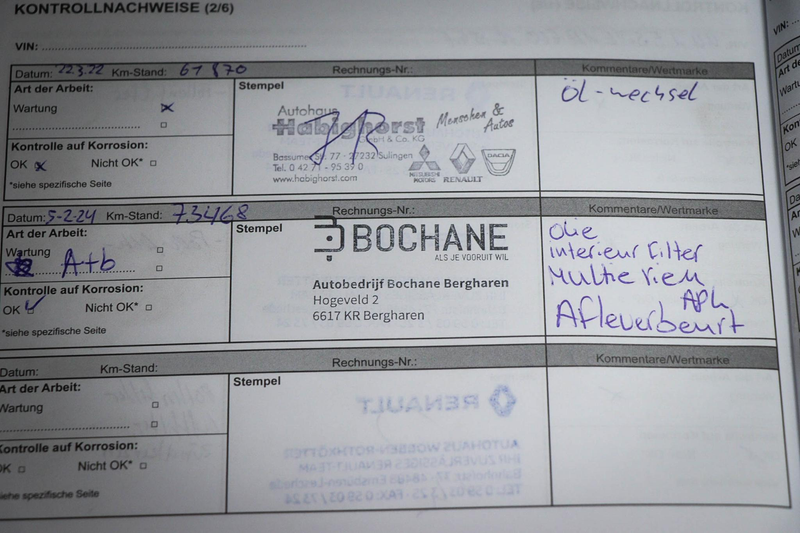 KONTROLLNACHWEISE (2/6)
VIN:
Datum: 22.3.22 Km-Stand: 61870 Rechnungs-Nr.: Kommentare/Wertmarke
Art der Arbeit:
Wartung x
Kontrolle auf Korrosion:
OK x Nicht OK*
*siehe spezifische Seite
Stempel
Autohaus
Habighorst
GmbH & Co. KG
Menschen &
Autos
Bassumer Str. 77 · 27232 Sulingen
Tel. 0 42 71 - 95 39 0
www.habighorst.com
MITSUBISHI
MOTORS
RENAULT
DACIA
Öl-wechsel
Datum: 5-2-24 Km-Stand: 73468 Rechnungs-Nr.: Kommentare/Wertmarke
Art der Arbeit:
Wartung
A+b
Kontrolle auf Korrosion:
OK Nicht OK*
*siehe spezifische Seite
Stempel
BOCHANE
ALS JE VOORUIT WIL
Autobedrijf Bochane Bergharen
Hogeveld 2
6617 KR Bergharen
Olie
interieur filter
Multie riem
APK
Afleverbeurt
Datum: Km-Stand: Rechnungs-Nr.: Kommentare/Wertmarke
Art der Arbeit:
Wartung
Kontrolle auf Korrosion:
OK Nicht OK*
siehe spezifische Seite
Stempel
RENAULT